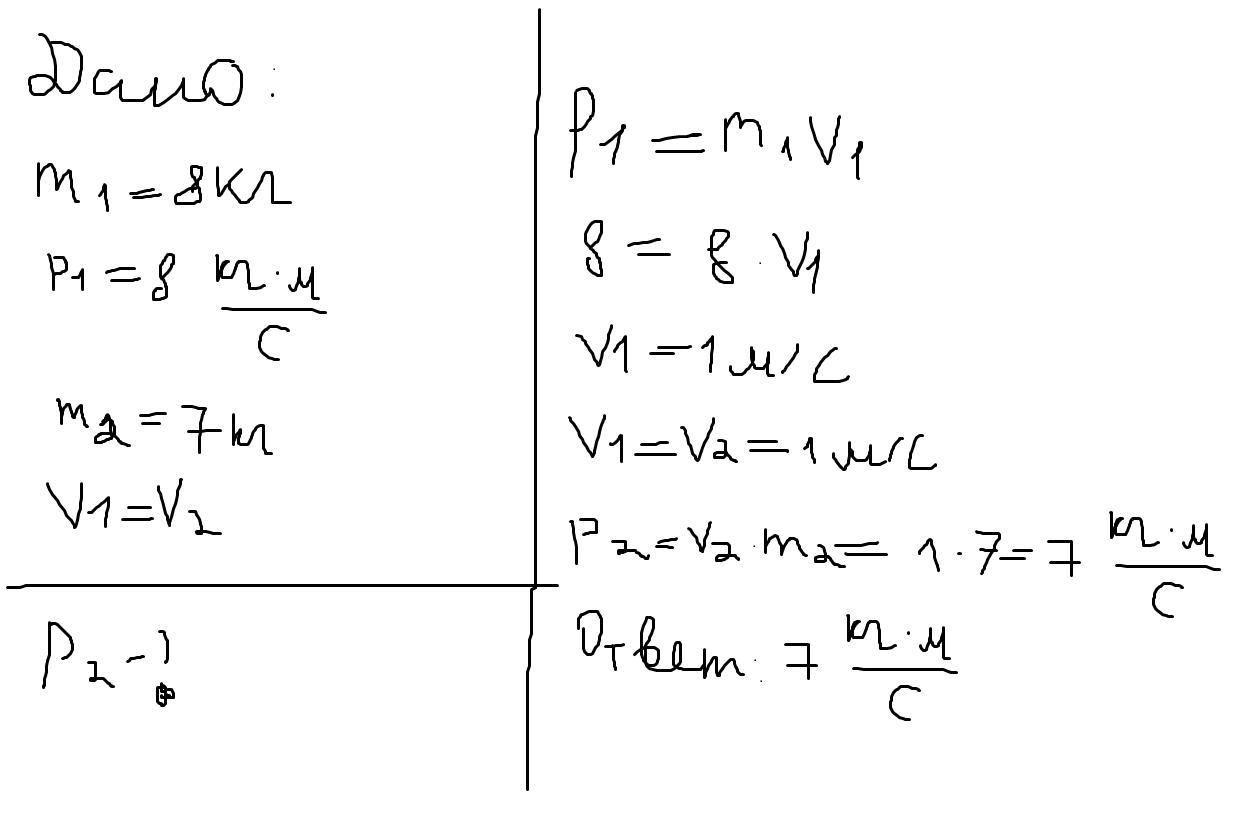 Дано:
m1 = 8 кг
P1 = 8 кг·м/с
m2 = 7 кг
V1 = V2
P2 - ?
P1 = m1 V1
8 = 8 · V1
V1 = 1 м/с
V1 = V2 = 1 м/с
P2 = V2 · m2 = 1 · 7 = 7 кг·м/с
Ответ: 7 кг·м/с